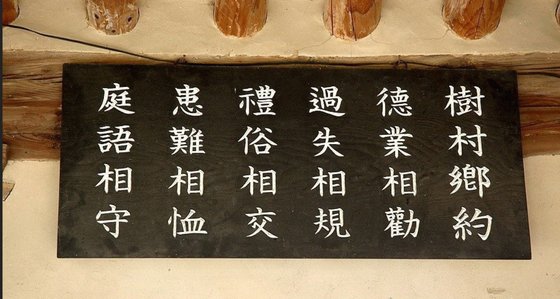 樹村鄉約
德業相勸
過失相規
禮俗相交
患難相恤
庭語相守